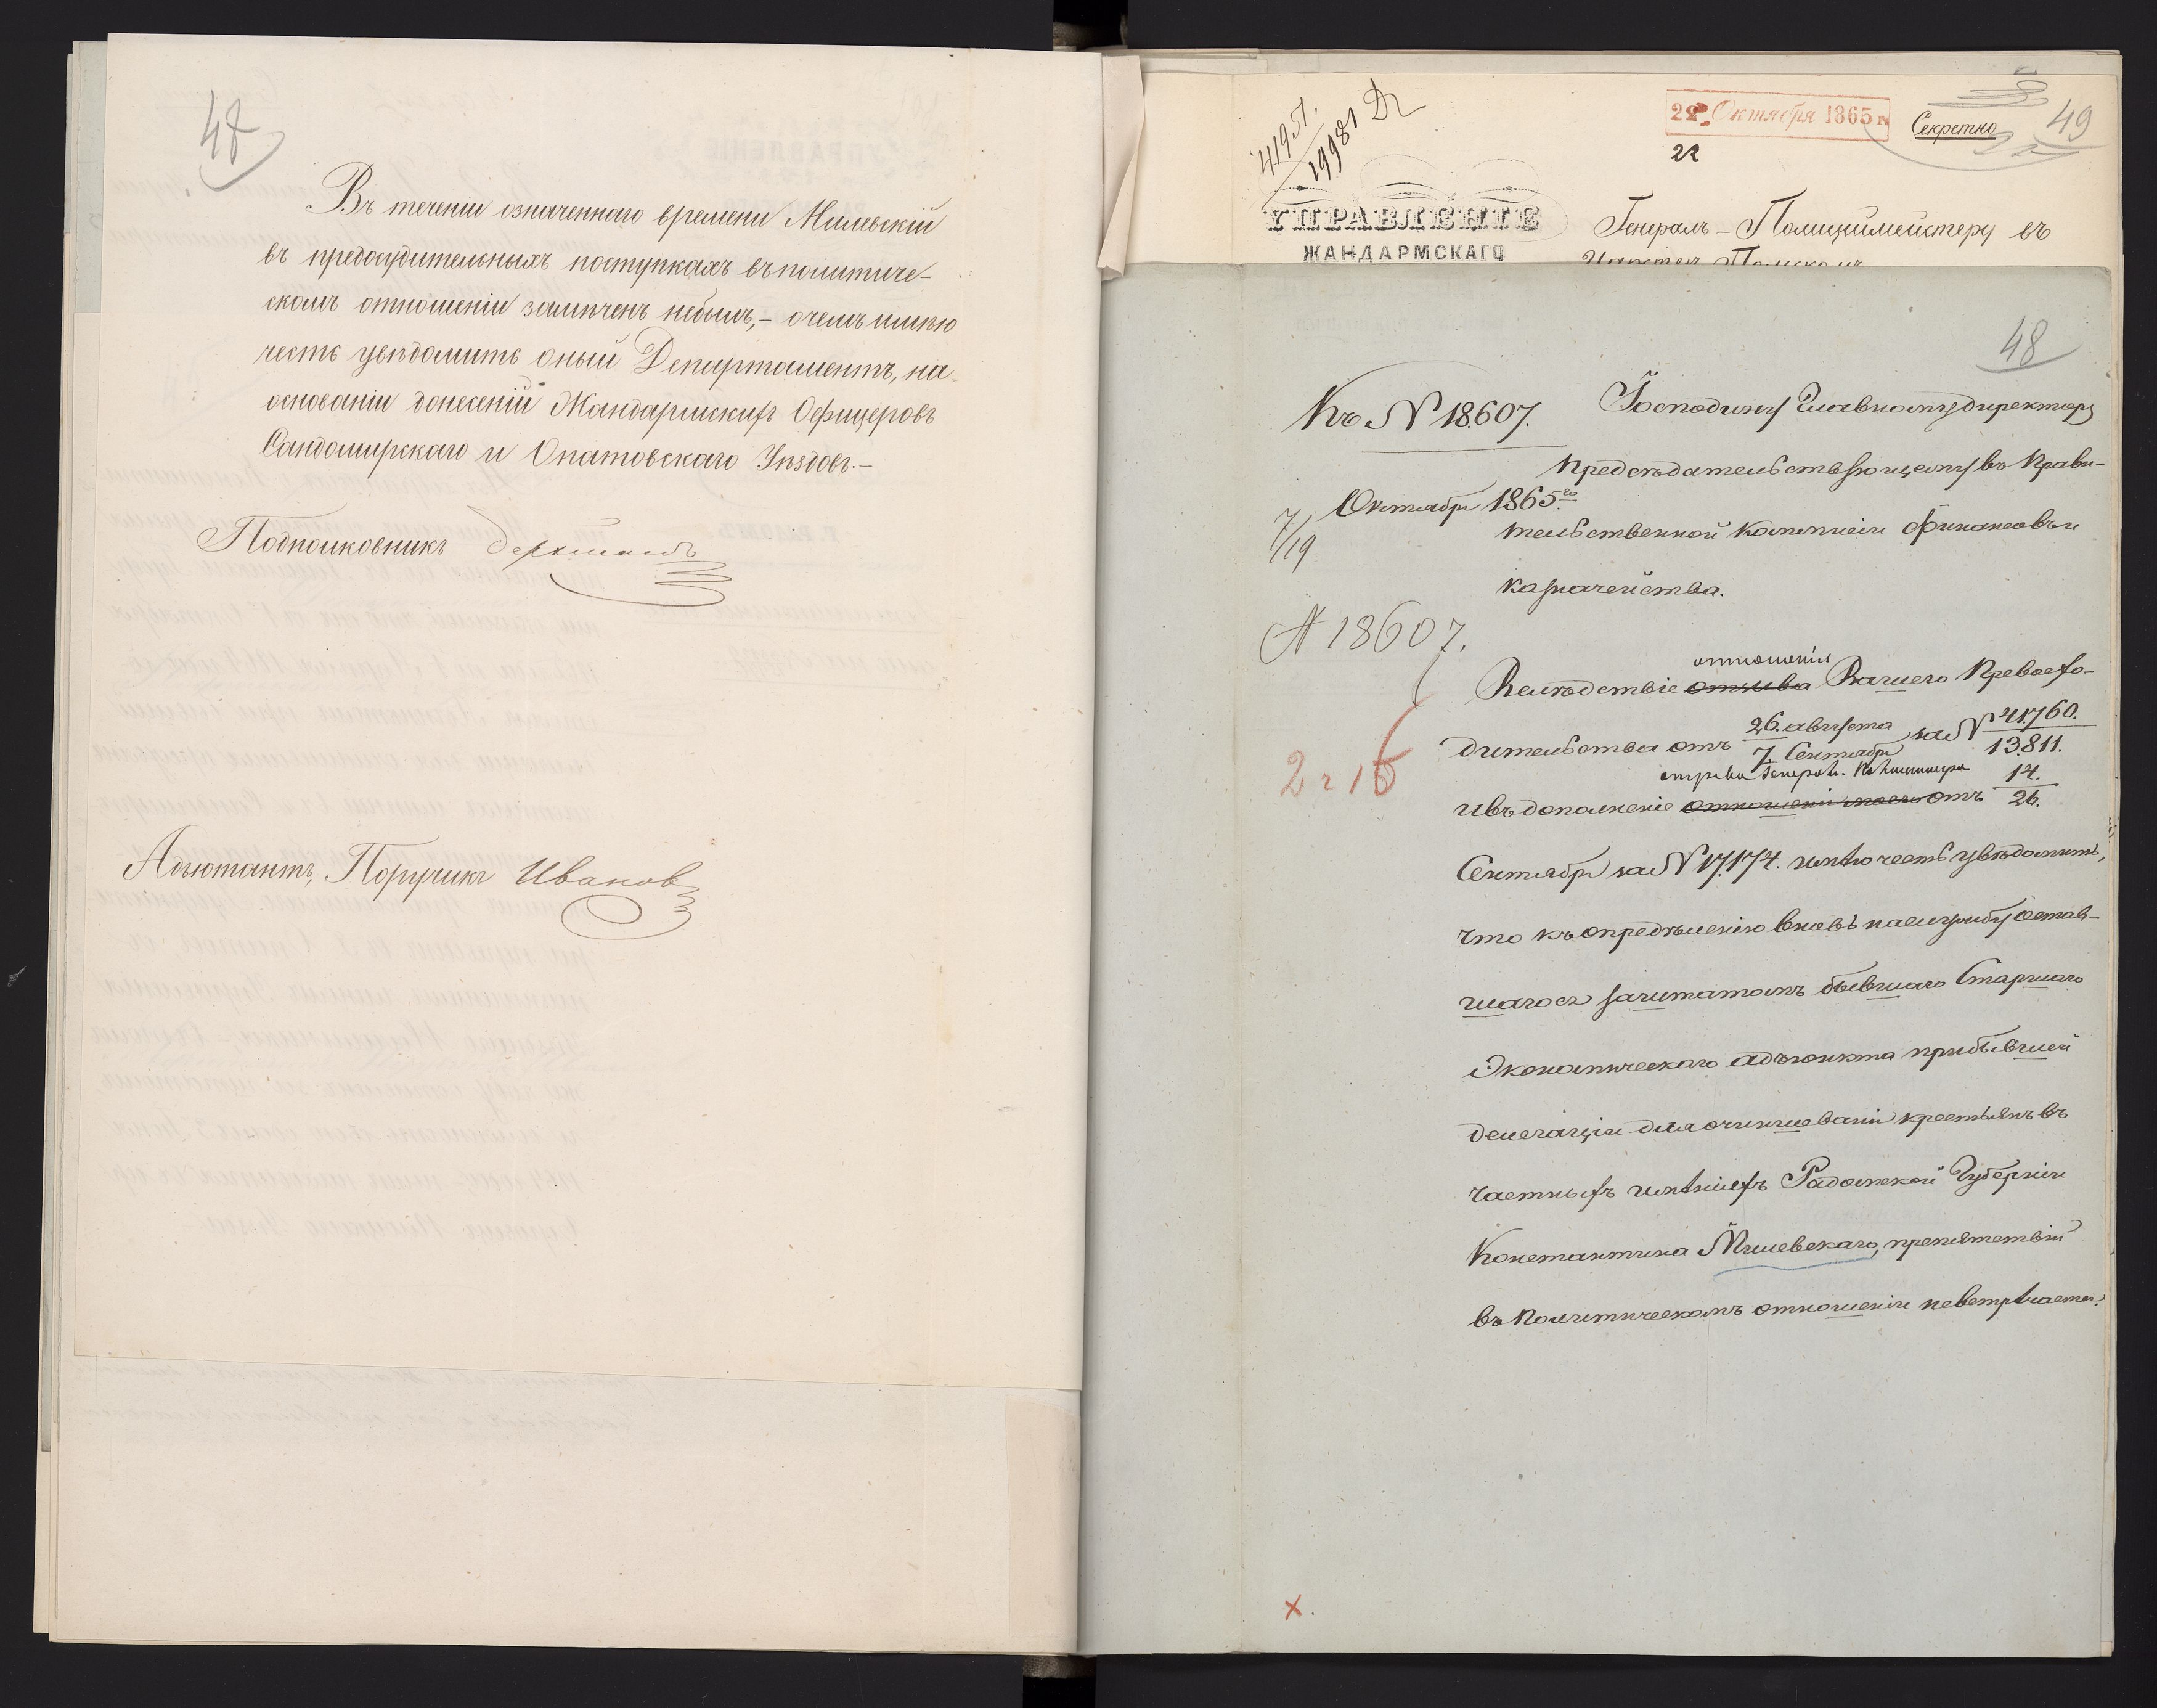 47
Въ теченіи означеннаго времени Мильскій
въ предосудительныхъ поступкахъ въ политиче-
скомъ отношеніи замѣченъ небылъ,- о чемъ имѣю
честь увѣдомить оный Департаментъ, на
основаніи донесеній Жандармскихъ Офицеровъ
Сандомирскаго и Опатовскаго Уѣздовъ.-
Подполковникъ
Адъютантъ, Поручикъ Иванов
41951.
19981
22 Октября 1865 г.
Секретно
49
22
УПРАВЛЕНІЕ
ЖАНДАРМСКАГО
Генералъ-Полицiймейстеру въ
Царствѣ Польскомъ
48
Къ № 18.607.
Октября 1865го
7/19
№ 18607.
2 г 15
Господину Главному директору
Предсѣдательствующему въ Прави-
тельственной Коммисіи Финансовъ и
казначейства.
отношенія
Вслѣдствіе отзыва Вашего Превосхо-
дительства отъ 26 августа / 7 Сентября за № 41.760. / 13.811.
отзыва Генерал. Полицiймейстера
и въ дополненіе отношенія моего отъ 14. / 26.
Сентября за № 17.174. имѣю честь увѣдомить,
что къ опредѣленію вновь на службу остав-
шагося за штатомъ бывшаго Старшаго
Экономическаго адъюнкта при бывшей
делегаціи для очиншеванія крестьянъ въ
частныхъ имѣніяхъ Радомской Губерніи
Константина Милевскаго, препятствій
въ Политическомъ отношеніи невстрѣчается.